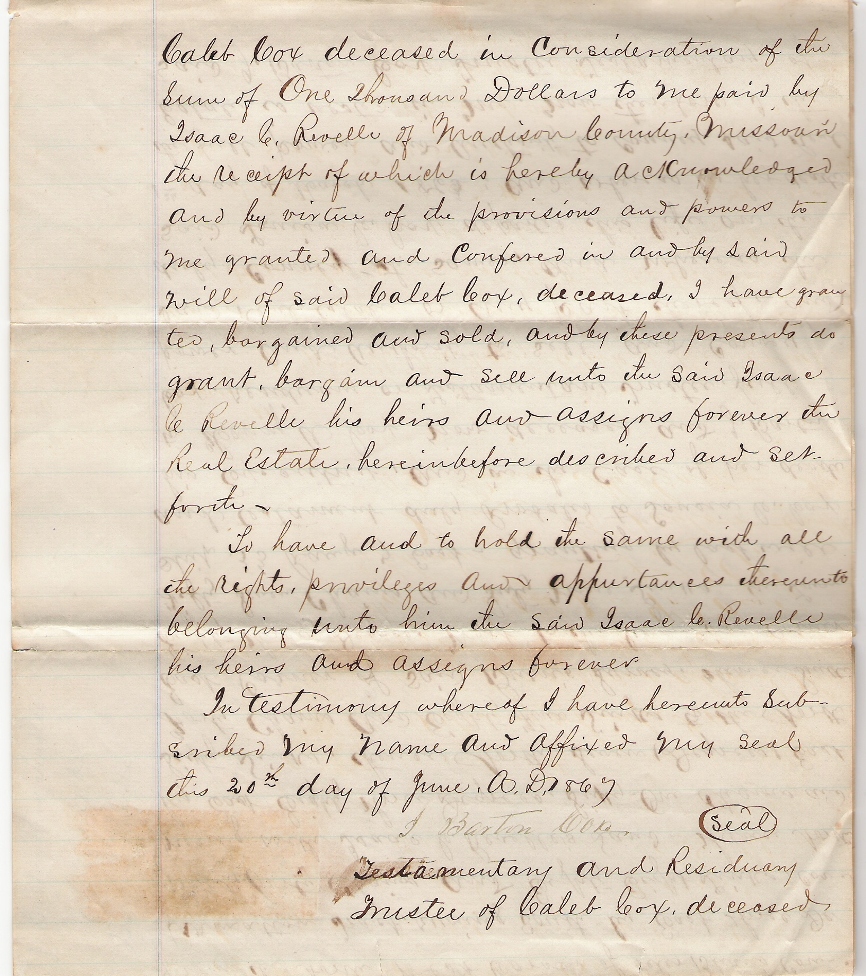 Caleb Cox deceased in Consideration of the
Sum of One Thousand Dollars to me paid by
Isaac C. Revelle of Madison County, Missouri
the receipt of which is hereby acknowledged
and by virtue of the provisions and powers to
me granted and Confered in and by said
will of said Caleb Cox, deceased, I have gran
ted, bargained and sold, and by these presents do
grant, bargain and sell unto the said Isaac
C Revelle his heirs and assigns forever the
Real Estate, hereinbefore described and set-
forth -
To have and to hold the same with all
the rights, privileges and appurtances thereunto
belonging unto him the said Isaac C. Revelle
his heirs and assigns forever
In testimony whereof I have hereunto Sub-
scribed my name and affixed my seal
this 20th day of June. A.D. 1867
J Barton Cox. seal
Testamentary and Residuary
Trustee of Caleb Cox, deceased